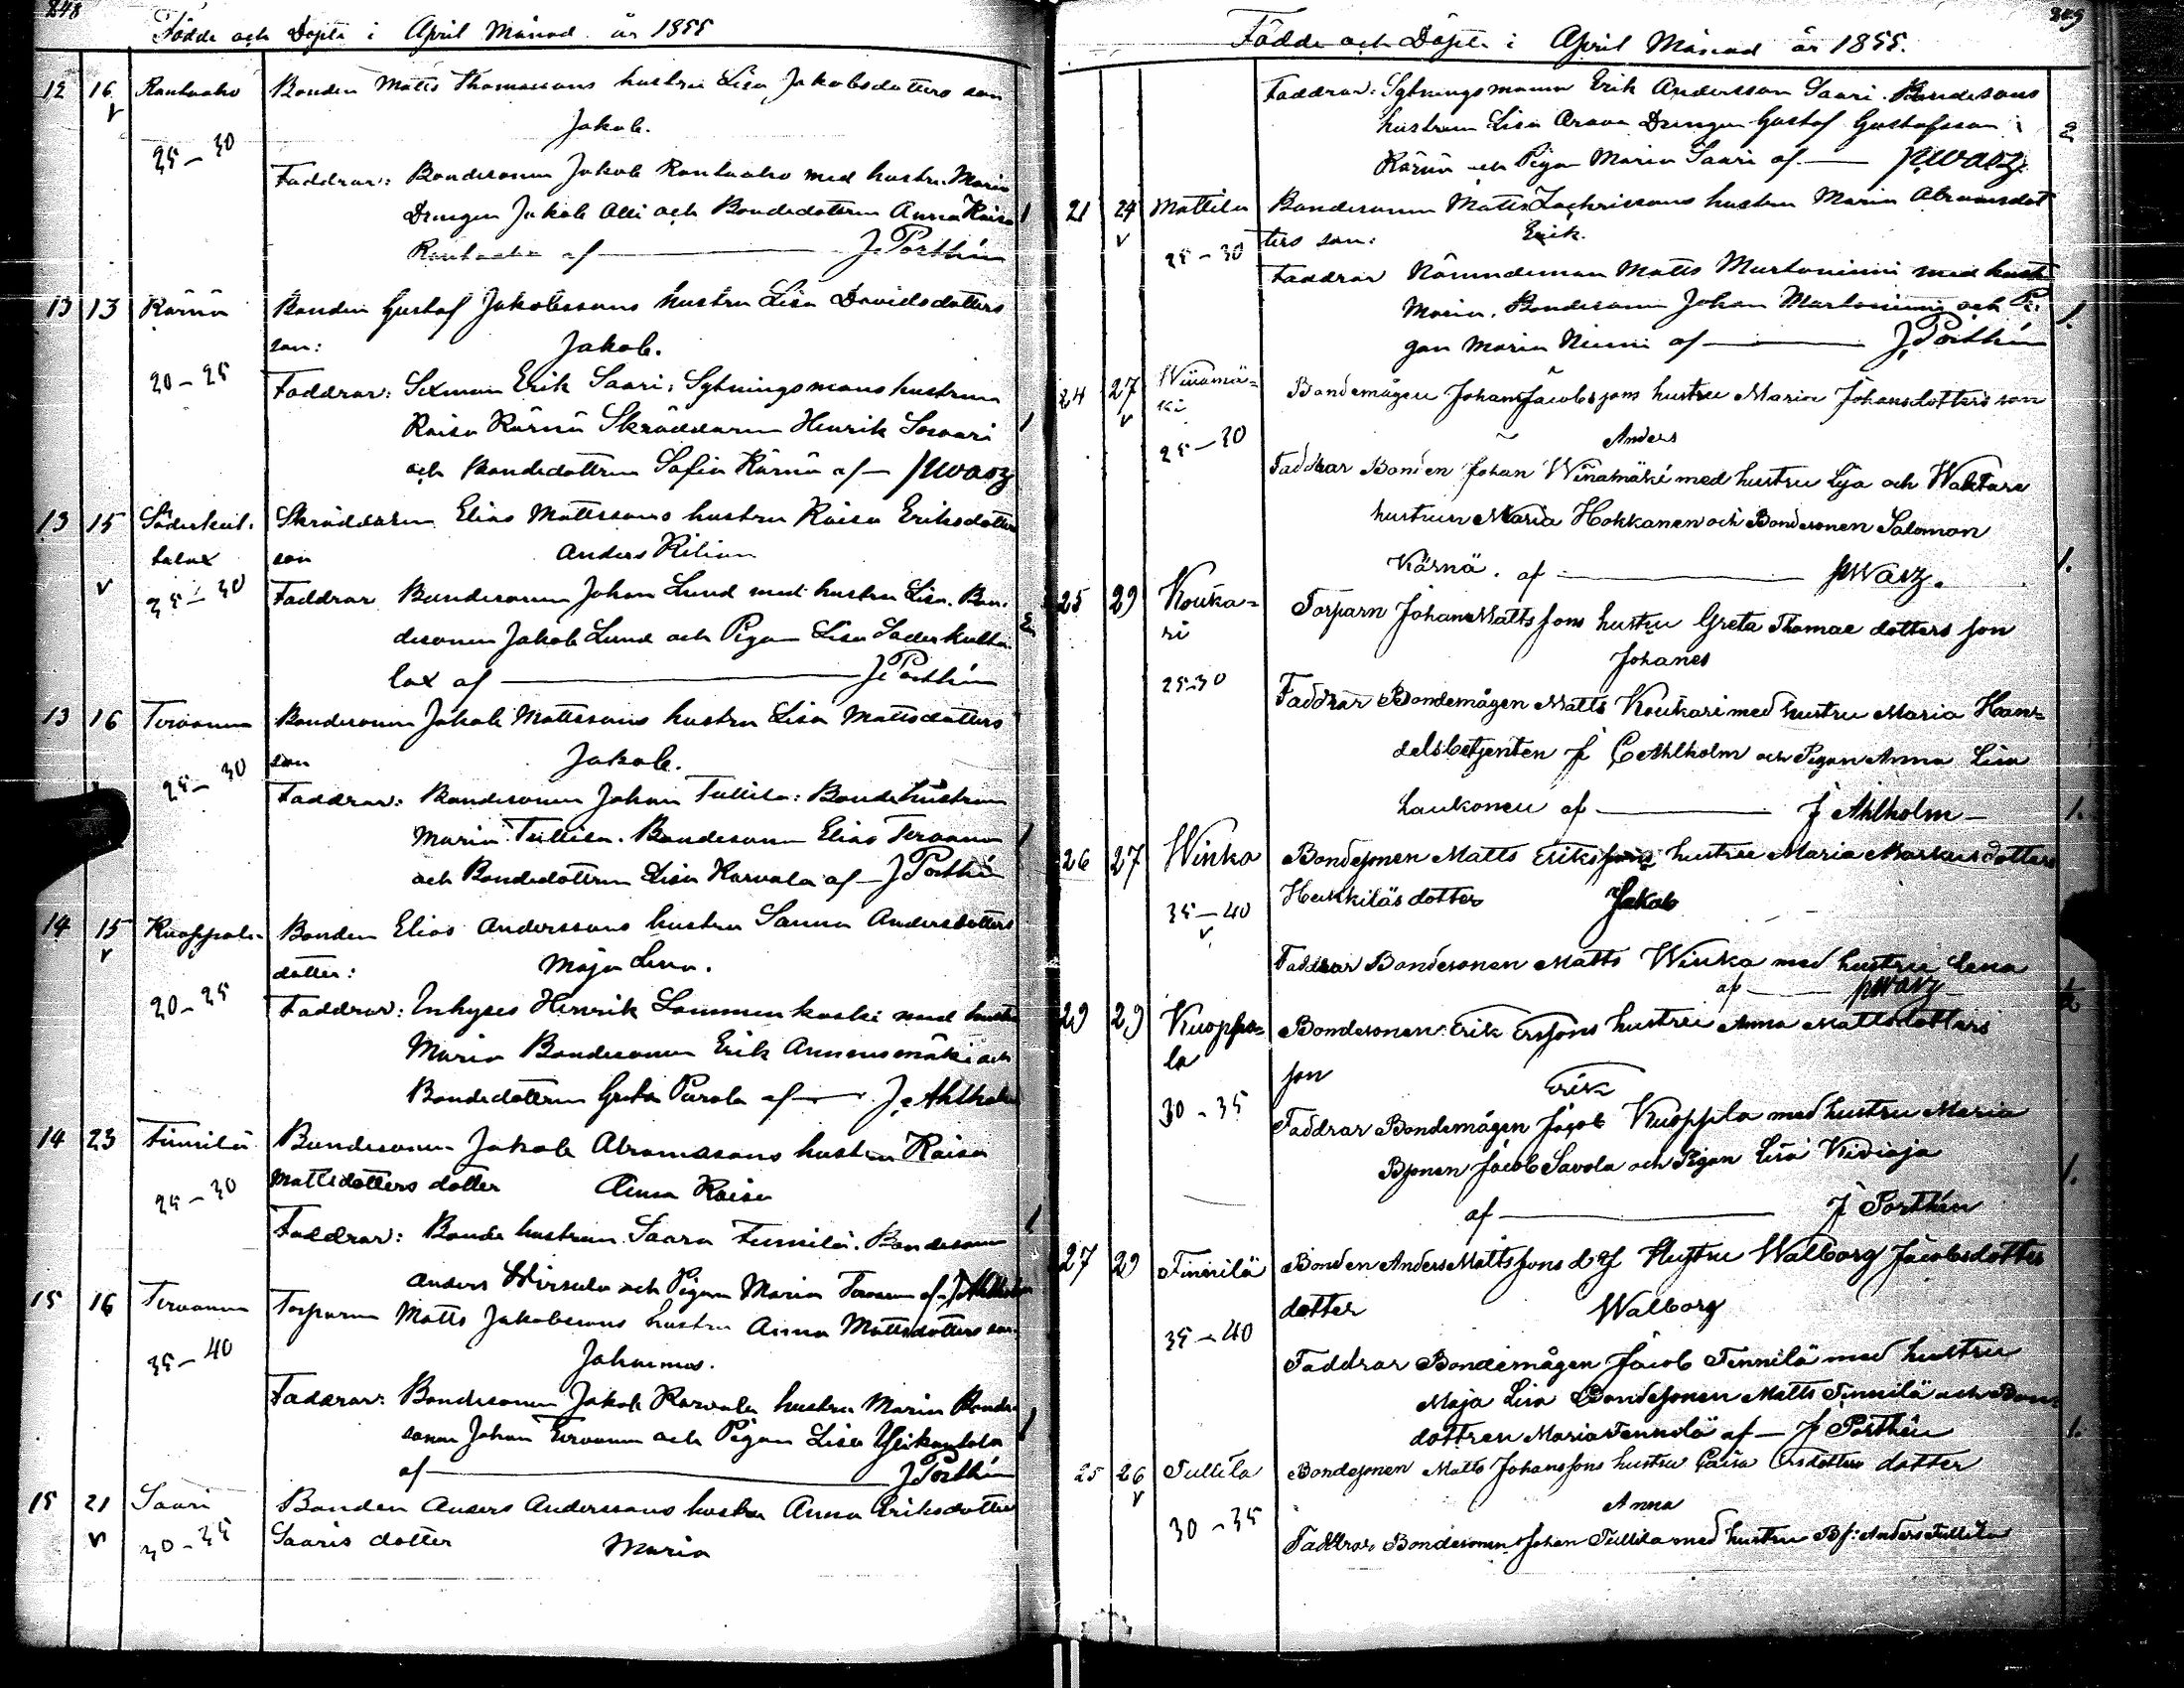 248
Födde och Döpte i April Månad år 1855
12 16 Rantaaho Bonden Matts Thomassons hustru Lisa Jakobsdotters son
v
Jakob.
25-30
Faddrar: Bondesonen Jakob Rantaaho med hustru Maria
Drengen Jakob Alli och Bondedottren Anna Kaisa 1
Rantaaho af — J. Porthén
13 13 Kärnä Bonden Gustaf Jakobssons hustru Lisa Davidsdotters
son: Jakob.
20-25 Faddrar: Sexman Erik Saari, Sytningsmans hustrun
Kaisa Kärnä Skräddaren Henrik 1
och Bondedottren Sofia Kärnä af — JWasz
13 15 Söderkul- Skräddaren Elias Mattssons hustru Kaisa Eriksdotters
talax son Anders Kilian
v 25-30 Faddrar Bondesonen Johan Lund med hustru Lisa. Bon-
desonen Jakob Lund och Pigan Lisa Söderkulta- 2
lax af — J. Porthén
13 16 Tervonen Bondesonen Jakob Mattssons hustru Lisa Mattsdotters
son Jakob.
25-30
Faddrar: Bondesonen Johan Tullila: Bondehustrun
Maria Tullila. Bondesonen Elias Tervonen 1
och Bondedottren Lisa Harvala af — J Porthén
14 15 Kuoppala Bonden Elias Anderssons hustru Sanna Andersdotters
v
dotter: Maja Lena.
20-25 Faddrar: Inhyses Henrik Lammenkoski med hustru
Maria Bondesonen Erik Ammesmäki och
Bondedottren Greta Purola af — J. Ahlholm
14 23 Finnilä Bondesonen Jakob Abramssons hustru Kaisa
Mattsdotters dotter Anna Kaisa
25-30
Faddrar: Bonde hustrun Saara Finnilä. Bondesonen 1
Anders Hirselä och Pigan Maria Tervonen af J Ahlholm
15 16 Tervonen Torparen Matts Jakobssons hustru Anna Mattsdotters son
Johannes.
35-40
Faddrar: Bondesonen Jakob Karvala hustru Maria Bonde-
sonen Johan Tervonen och Pigan Lisa 1
af — J Porthén
15 21 Saari Bonden Anders Anderssons hustru Anna Eriksdotter
v 30-35 Saaris dotter Maria
249
Födde och Döpte i April Månad år 1855.
Faddrar: Sytningsmannen Erik Andersson Saari. Bondesons
hustrun Lisa Orava Drengen Gustaf Gustafsson i 2
Kärnä och Pigan Maria Saari af — JWasz
21 24 Mattila Bondesonen Matts Zachrissons hustru Maria Abramsdot
v 25-30 ters son: Erik.
Faddrar Nämndeman Matts Murtoniemi med hustr
Maria, Bondesonen Johan Murtoniemi och Pi- 1.
gan Maria Niemi af — J. Porthén
24 27 Wiinamä= Bondemågen Johan Jacobssons hustru Maria Johansdotters son
v ki
Anders
25-30
Faddrar Bonden Johan Winamäki med hustru Lisa och Waktars
hustrun Maria Hokkanen och Bondesonen Salomon
Kärnä. af — JWasz. 1.
25 29 Kouka= Torparn Johan Mattssons hustru Greta Thomae dotters son
ri
Johanes
25-30
Faddrar Bondemågen Matts Koukari med hustru Maria Han=
delsbetjenten J C Ahlholm och Pigan Anna Lisa
Laukonen af — J Ahlholm — 1.
26 27 Winka Bondesonen Matts Erikssons hustru Maria Markusdotters
Heikkiläs dotter Jakob
35-40
v
Faddrar Bondesonen Matts Winka med hustru Lena
af — JWasz
29 29 Kuoppa= Bondesonen Erik Erssons hustru Anna Mattsdotters
la son
Erik
30-35 Faddrar Bondemågen Jacob Kuoppla med hustru Maria
Bsonen Jacob Savola och Pigan Lisa Kivioja 1.
af — J Porthén
27 29 Finnilä Bonden Anders Mattssons d.y. Hustru Walborg Jacobsdotter
dotter Walborg
35-40
Faddrar Bondemågen Jacob Finnilä med hustru
Maja Lisa Bondesonen Matts Finnilä och Bon=
dottren Maria Finnilä af — J Porthén 1.
25 26 Tullila Bondesonen Matts Johanssons hustru Caisa Ersdotters dotter
v
Anna
30-35
Faddrar Bondesonen Johan Tullila med hustru Bs: Anders Tullila